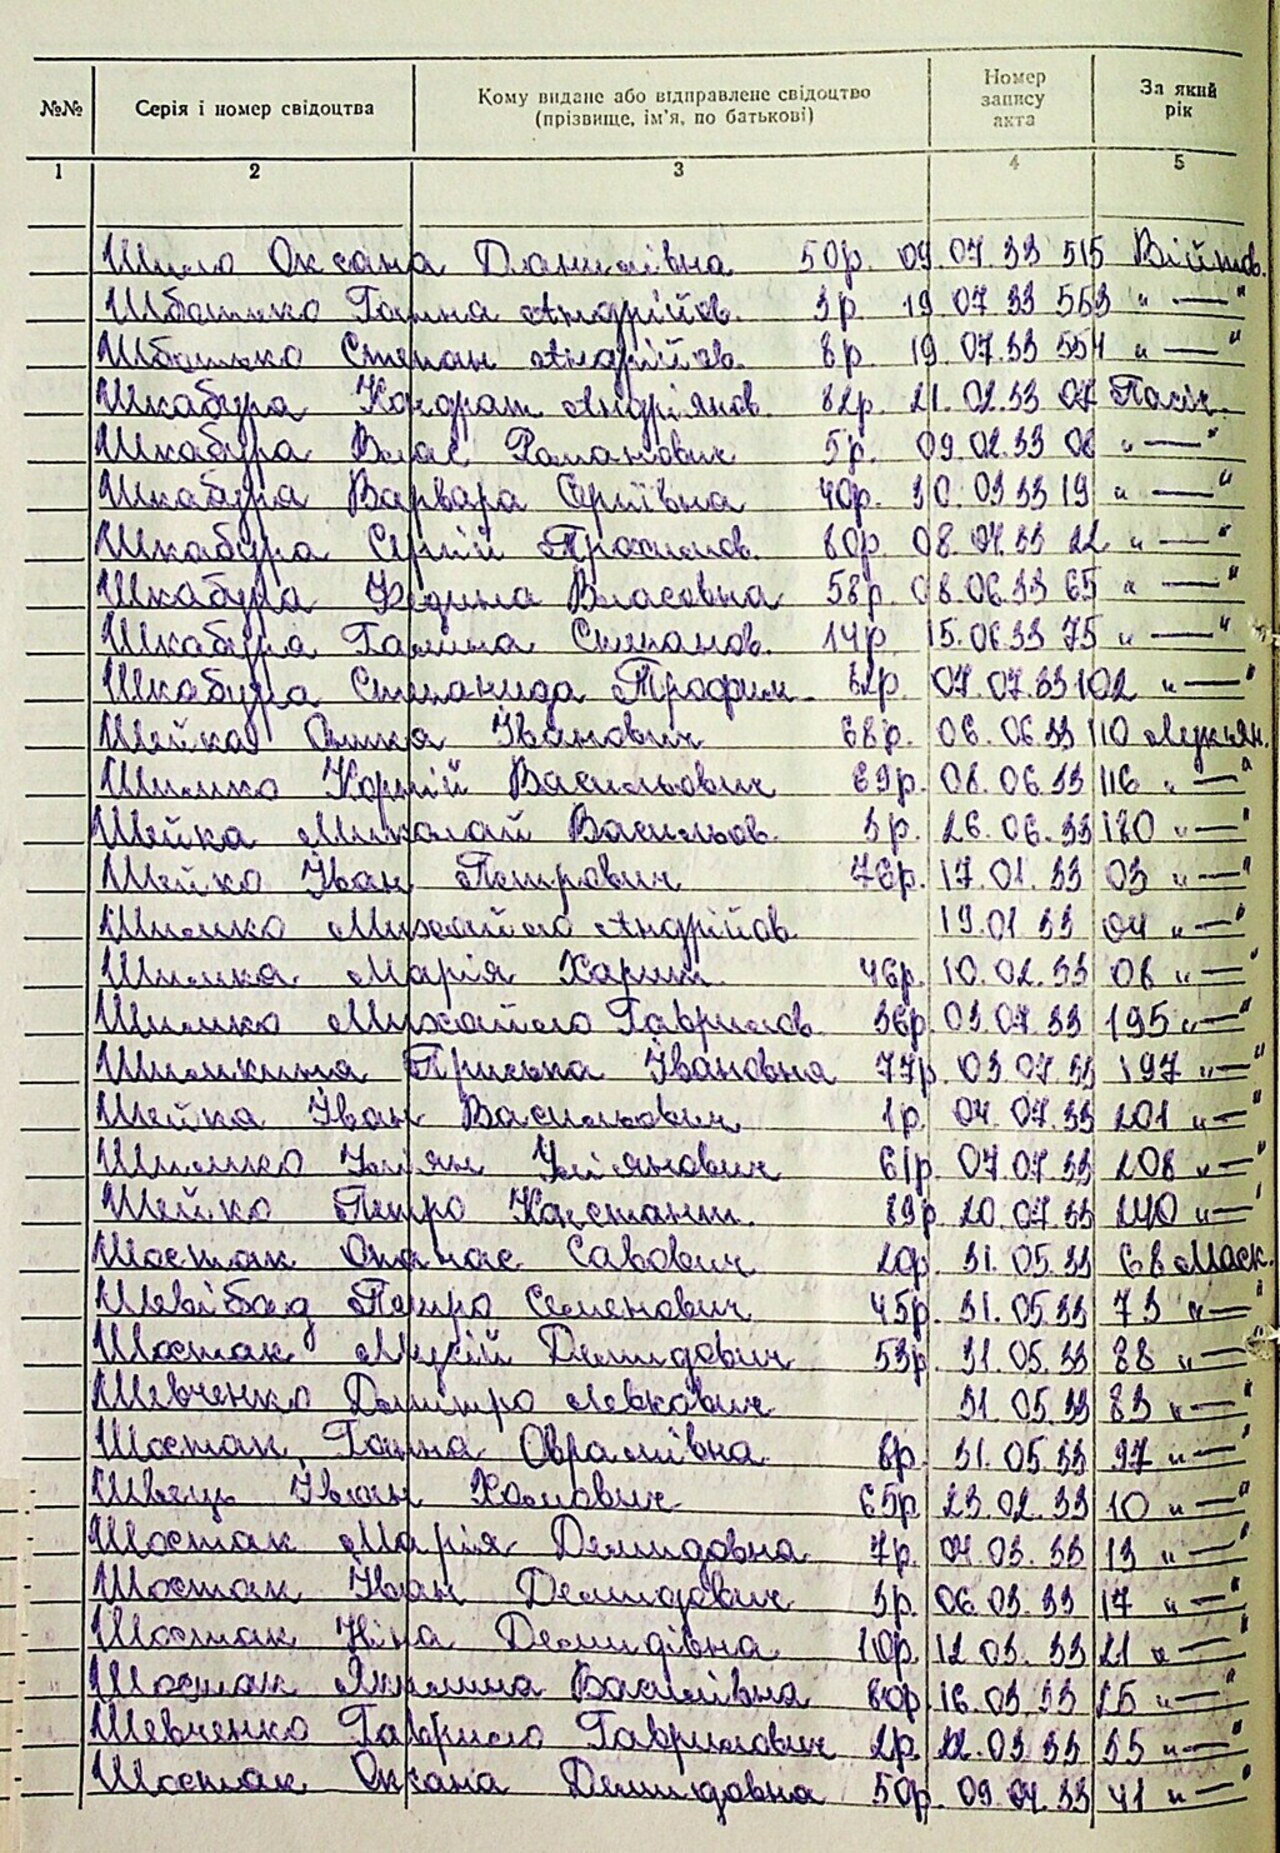 №№ Серія і номер свідоцтва Кому видане або відправлене свідоцтво (прізвище, ім'я, по батькові) Номер запису акта За який рік
1 2 3 4 5
Шило Оксана Данилівна 50р. 09.07.33 515 Війтов.
Шбатько Ганна Андрійов. 3р 19.07.33 553 "—"
Шбатько Степан Андрійов. 8р 19.07.33 554 "—"
Шкабура Кондрат Андріянов. 82р. 21.02.33 07 Пасіч.
Шкабура Влас Романович 5р. 09.02.33 08 "—"
Шкабура Варвара Сергіївна 40р. 30.03.33 19 "—"
Шкабура Сергій Трохимов. 80р. 08.04.33 22 "—"
Шкабура Федина Власовна 58р. 08.06.33 65 "—"
Шкабура Галина Степанов. 14р. 15.06.33 75 "—"
Шкабура Степанида Трофим. 32р. 07.07.33 102 "—"
Шейка Іванович 68р. 06.06.33 110 Лук'ян.
Шилко Корній Васильович 69р. 08.06.33 116 "—"
Шейка Миколай Васильов. 3р. 26.06.33 180 "—"
Шейко Іван Петрович 76р. 17.01.33 03 "—"
Шилко Михайло Андрійов. 19.01.33 04 "—"
Шилка Марія Харит. 46р. 10.02.33 06 "—"
Шилко Михайло Гаврилов. 36р 03.07.33 195 "—"
Шилкина Приська Івановна 77р. 03.07.33 197 "—"
Шейка Іван Васильович 1р. 04.07.33 201 "—"
Шилко Улян Улянович 61р. 07.07.33 208 "—"
Шейко Петро Констант. 89р. 20.07.33 240 "—"
Шостак Опанас Савович 20р. 31.05.33 68 Маск.
Шевібад Петро Семенович 45р. 31.05.33 73 "—"
Шостак Мусій Демидович 53р 31.05.33 88 "—"
Шевченко Дмитро Левкович 31.05.33 83 "—"
Шостак Ганна Оврамівна 8р. 31.05.33 97 "—"
Швець Іван Хомович 65р 23.02.33 10 "—"
Шостак Марія Демидовна 7р. 04.03.33 13 "—"
Шостак Іван Демидович 3р. 06.03.33 17 "—"
Шостак Ніна Демидівна 10р. 12.03.33 21 "—"
Шостак Якилина Василівна 80р. 16.03.33 25 "—"
Шевченко Гаврило Гаврилович 2р. 22.03.33 35 "—"
Шостак Оксана Демидовна 50р. 09.04.33 41 "—"